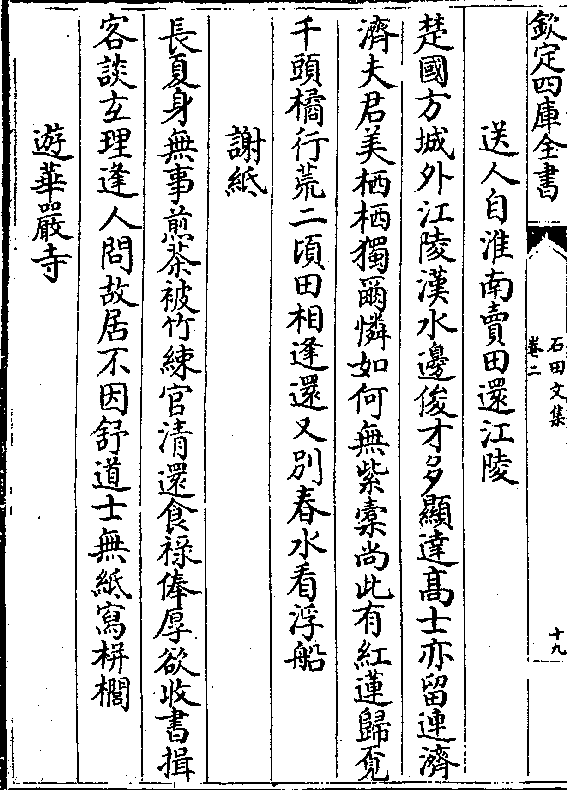 欽定四庫全書
石田文集
卷二
十九
送人自淮南賣田還江陵
楚國方城外江陵漢水邊俊才多顯達髙士亦留連濟
濟夫君美栖栖獨爾憐如何無紫橐尚此有紅蓮歸覔
千頭橘行荒二頃田相逢還又别春水看浮船
謝紙
長夏身無事煎茶被竹練官清還食禄俸厚欲收書揖
客談𤣥理逢人問故居不因舒道士無紙寫栟櫚
遊華嚴寺